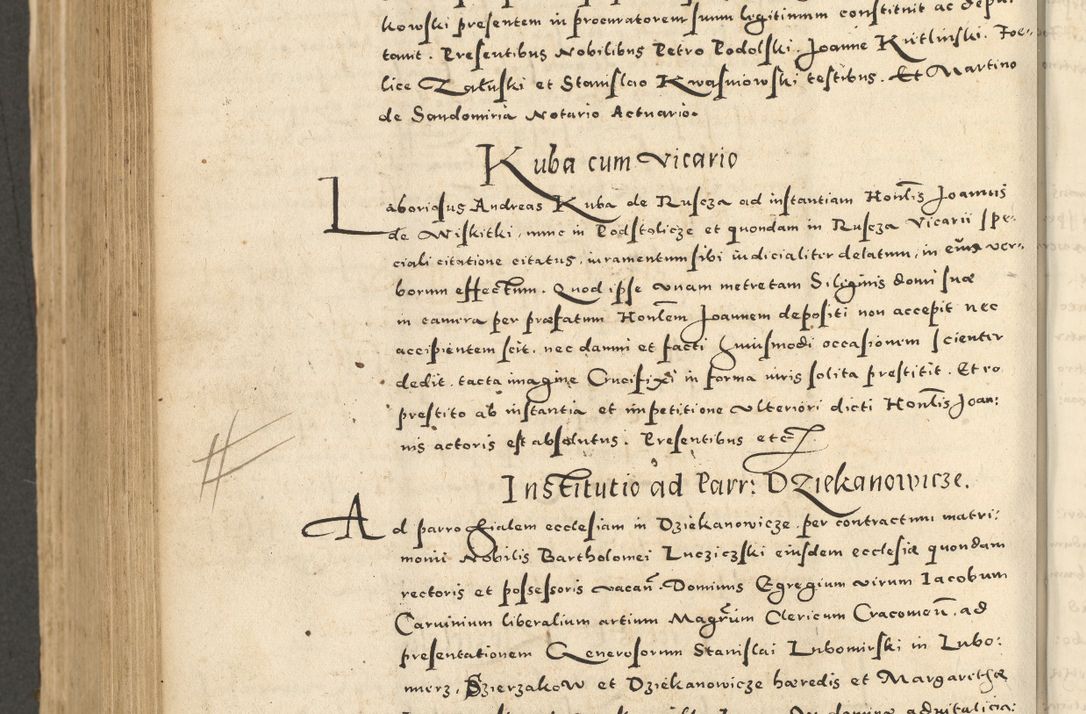 kowski presentem in procuratorem suum legitimum constituit ac depu
tavit. Presentibus Nobilibus Petro Podolski. Joanne Kutlinski. Foe-
lice Załuski et Stanislao Kwasniowski testibus. Et Martino
de Sandomiria Notario Actuario.
Kuba cum Vicario
Laboriosus Andreas Kuba de Ruscza ad instantiam Honlis Joannis
de Wiskitki, nunc in Podstolicze et quondam in Ruscza Vicarii spe-
ciali citatione citatus, iuramentum sibi iudicialiter delatum, in eius ver-
borum effectum. Quod ipse unam metretam Siliginis domi suæ
in camera per præfatum Honlem Joannem depositi non accepit nec
accipientem scit. nec damni et facti huiusmodi occasionem scienter
dedit. tacta imagine Crucifixi in forma iuris solita prestitit. Et eo
prestito ab instantia et impetitione ulteriori dicti Honlis Joan:
nis actoris est absolutus. Presentibus etc
Institutio ad Parr: Dziekanowicze.
Ad parrochialem ecclesiam in Dziekanowicze. per contractum matri:
monii Nobilis Bartholomei Lucziczski eiusdem ecclesiæ quondam
rectoris et possessoris vacan̄. Dominus Egregium virum Iacobum
Carvinium liberalium artium Magrum Clericum Cracovien̄. ad
presentationem Generosorum Stanislai Lubomirski in Lubo:
mierz, Szierzakow et Dziekanowicze hæredis et Margarethæ